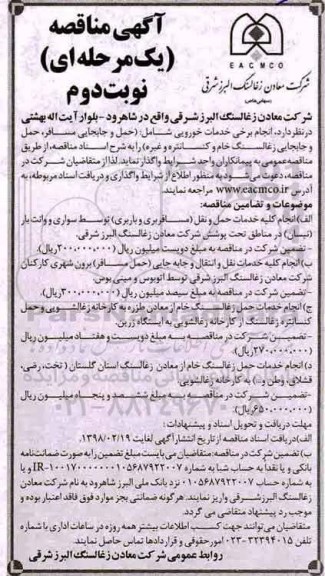 آگهی مناقصه
(یک مرحله ای)
نوبت دوم
EACMCO
شرکت معادن زغالسنگ البرز شرقی
(سهامی خاص)
شرکت معادن زغالسنگ البرز شرقی واقع در شاهرود - بلوار آیت اله بهشتی
درنظر دارد، انجام برخی خدمات خورویی شامل: (حمل و جابجایی مسافر، حمل
و جابجایی زغالسنگ خام و کنسانتره و غیره) را به شرح اسناد مناقصه، از طریق
مناقصه عمومی به پیمانکاران واجد شرایط واگذار نماید. لذا از متقاضیان شرکت در
مناقصه، دعوت می شود به منظور اطلاع از شرایط واگذاری و دریافت اسناد مربوطه، به
آدرس www.eacmco.ir مراجعه نمایند.
موضوعات و تضامین مناقصه:
الف) انجام کلیه خدمات حمل و نقل (مسافربری و باربری) توسط سواری و وانت بار
(نیسان) در مناطق تحت پوشش شرکت معادن زغالسنگ البرز شرقی.
- تضمین شرکت در مناقصه به مبلغ دویست میلیون ریال (۲۰۰,۰۰۰,۰۰۰ریال).
ب) انجام کلیه خدمات نقل و انتقال و جابه جایی (حمل مسافر) برون شهری کارکنان
شرکت معادن زغالسنگ البرز شرقی توسط اتوبوس و مینی بوس.
- تضمین شرکت در مناقصه به مبلغ سیصد میلیون ریال (۳۰۰,۰۰۰,۰۰۰ریال).
ج) انجام خدمات حمل زغالسنگ خام از معادن طزره به کارخانه زغالشویی و حمل
کنسانتره زغالسنگ از کارخانه زغالشویی به ایستگاه رزین.
- تضمین شرکت در مناقصه به مبلغ دویست و هفتاد میلیون ریال
(۲۷۰,۰۰۰,۰۰۰ریال).
د) انجام خدمات حمل زغالسنگ خام از معادن زغالسنگ استان گلستان (تخت، رضی،
قشلاق، وطن و..) به کارخانه زغالشویی
- تضمین شرکت در مناقصه به مبلغ ششصد و پنجاه میلیون ریال
(۶۵۰,۰۰۰,۰۰۰ریال).
مهلت دریافت و تحویل اسناد و پیشنهادات:
الف) دریافت اسناد مناقصه از تاریخ انتشار آگهی لغایت ۱۳۹۸/۰۲/۱۹.
ب) تضمین شرکت در مناقصه: متقاضیان می بایست مبلغ تضمین را به صورت ضمانت نامه
بانکی و یا نقدا به حساب شبا به شماره
به شماره حساب ۰۱۰۵۶۸۷۹۲۲۰۰۷ نزد بانک ملی البرز شاهرود به نام شرکت معادن
زغالسنگ البرزشرقی واریز نمایند. هر گونه ضمانتی بجز موارد فوق فاقد اعتبار بوده و
موجب رد پیشنهاد متقاضی می گردد.
متقاضیان می توانند جهت کسب اطلاعات بیشتر همه روزه در ساعات اداری با شماره
تلفن ۳۲۳۹۴۰۱۵-۰۲۳ امور حقوقی و قراردادها تماس حاصل نمایند.
روابط عمومی شرکت معادن زغالسنگ البرز شرقی